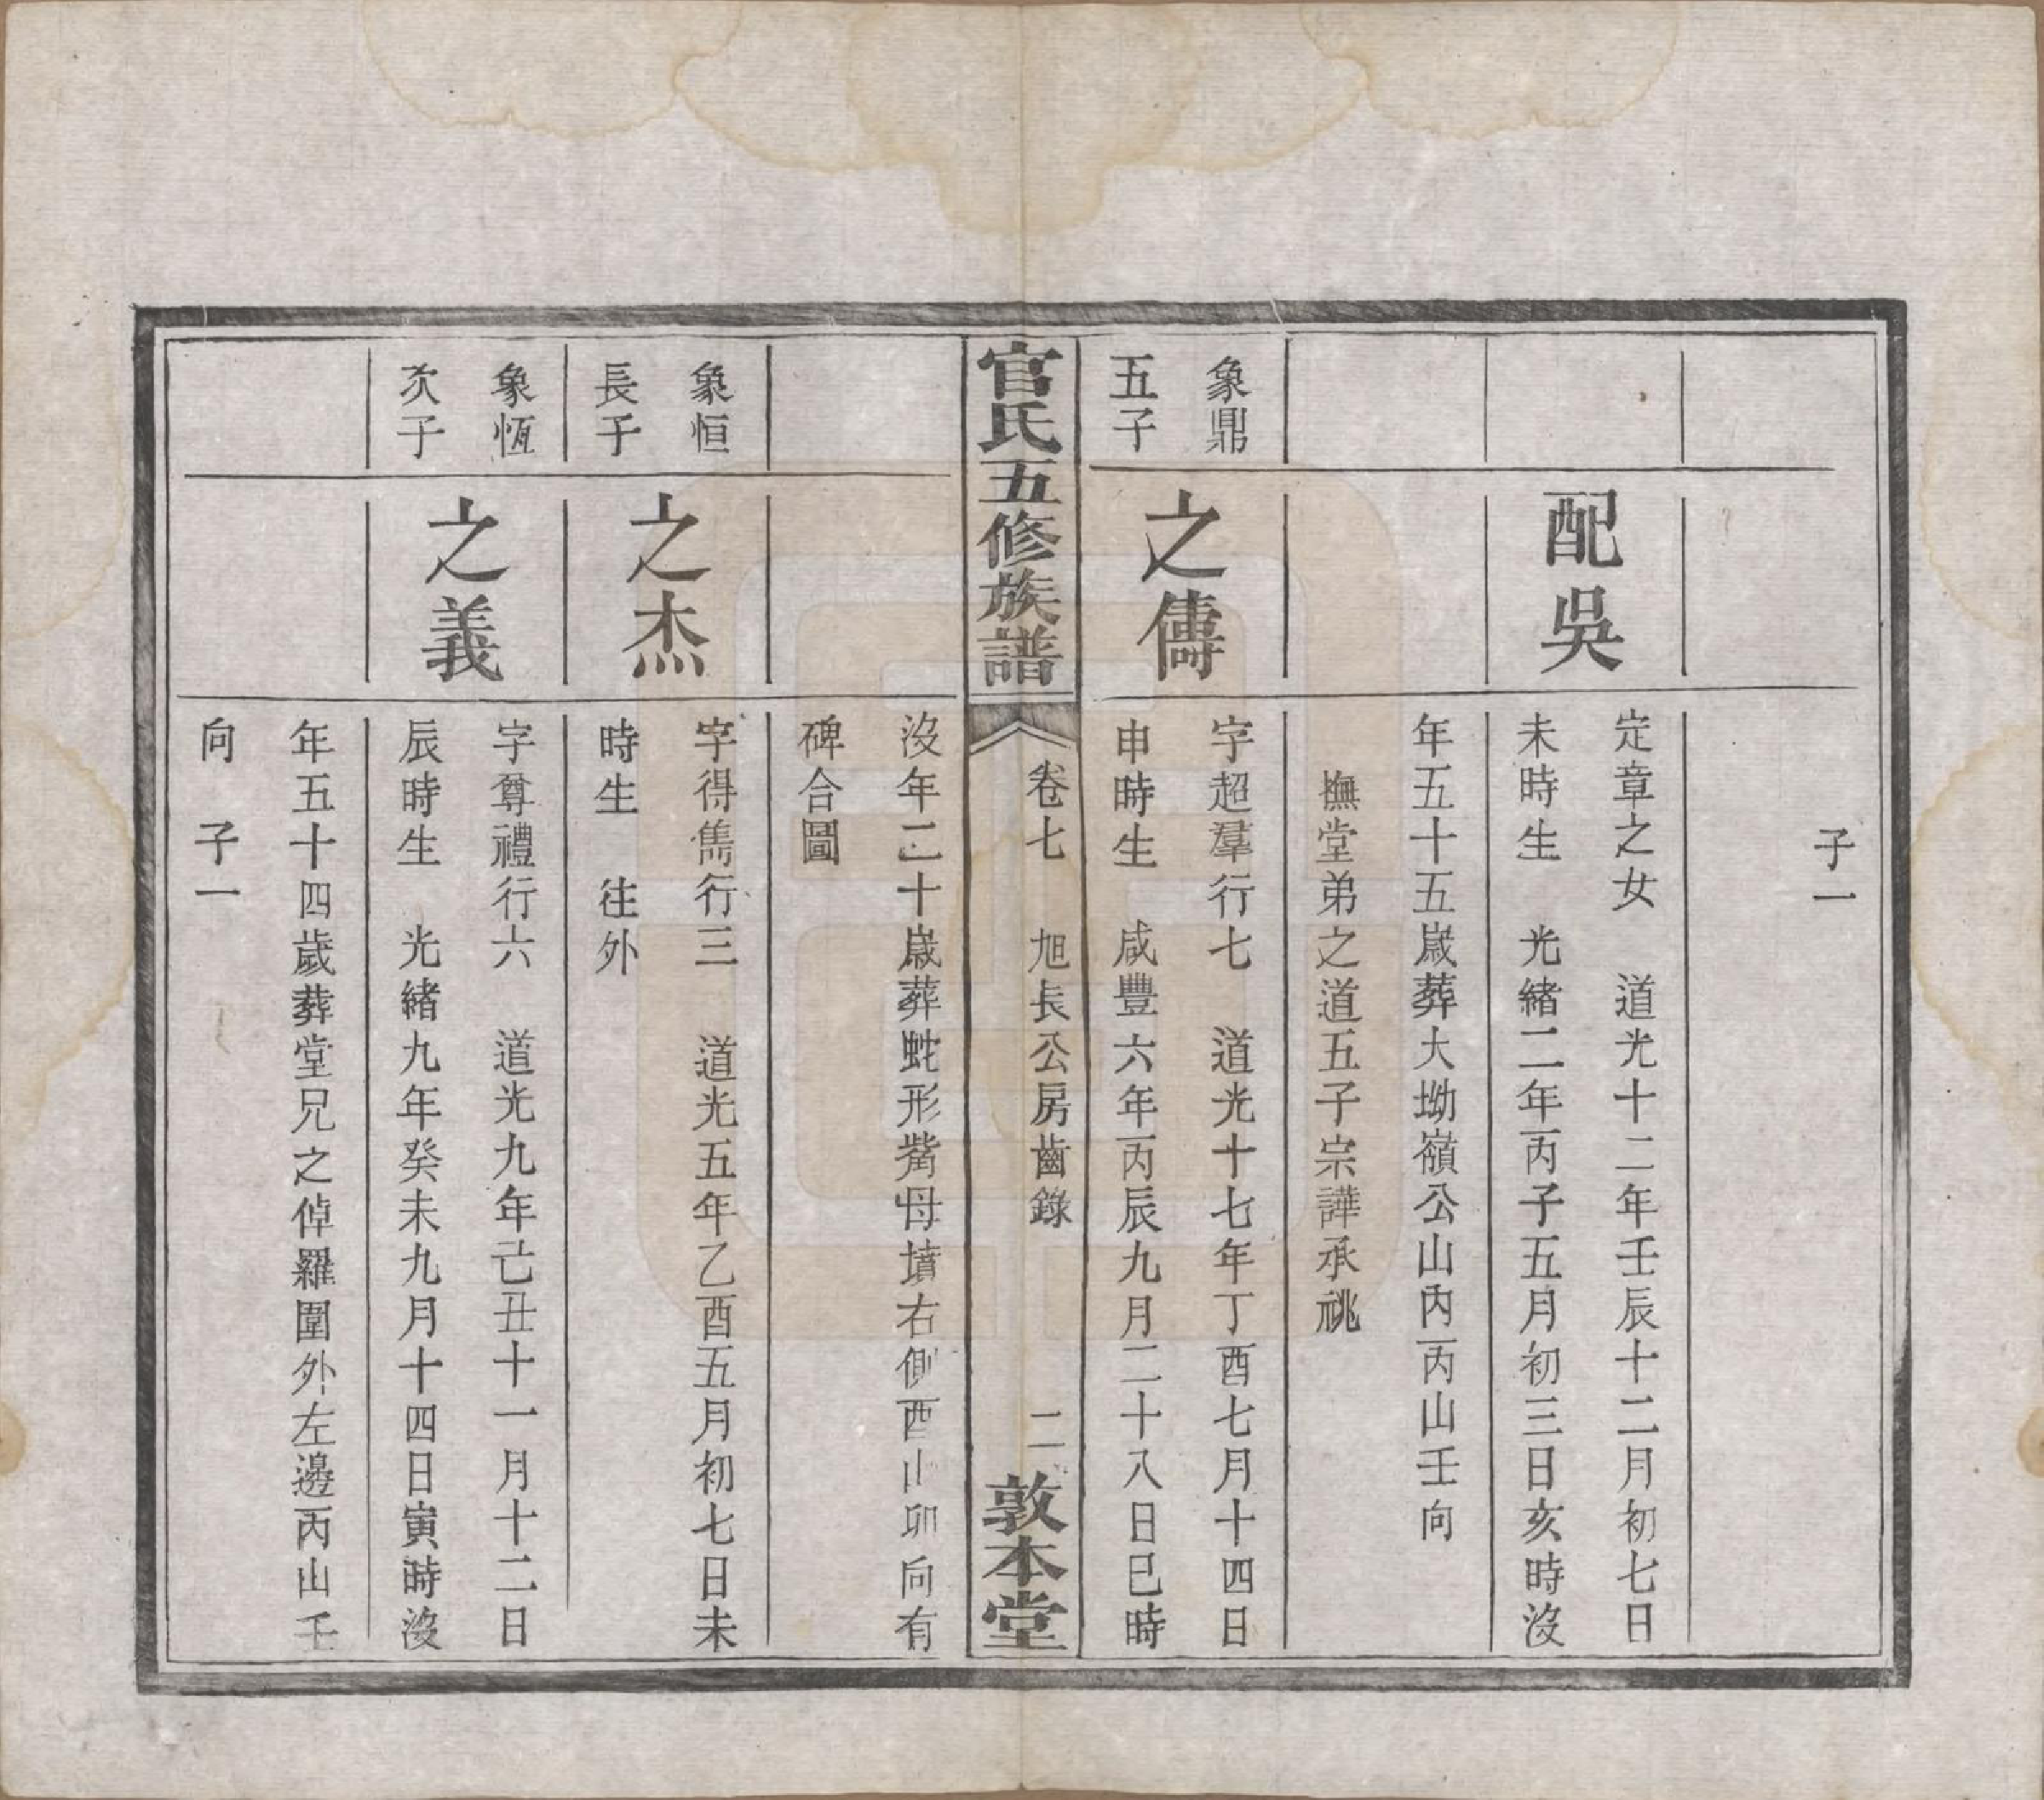 子一
配吳
定章之女　道光十二年壬辰十二月初七日
未時生　光緒二年丙子五月初三日亥時沒
年五十五歲葬大坳嶺公山內丙山壬向
撫堂弟之道五子宗譁承祧
象鼎
五子
之傳
字超羣行七　道光十七年丁酉七月十四日
申時生　咸豐六年丙辰九月二十八日巳時
官氏五修族譜
卷七　旭長公房齒錄
二
敦本堂
沒年二十歲葬蛇形嘴母墳右側酉山卯向有
碑合圖
象恒
長子
之杰
字得雋行三　道光五年乙酉五月初七日未
時生　往外
象恆
次子
之義
字尊禮行六　道光九年己丑十一月十二日
辰時生　光緒九年癸未九月十四日寅時沒
年五十四歲葬堂兄之倬羅圍外左邊丙山壬
向　子一